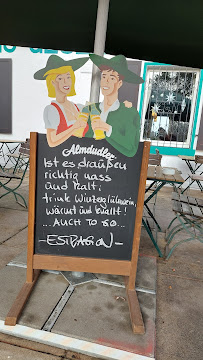 Almdudler
Ist es draußen
richtig nass
und kalt:
trink Winzerglühwein,
wärmt und knallt!
... AUCH TO GO...
-ESTRAGON-